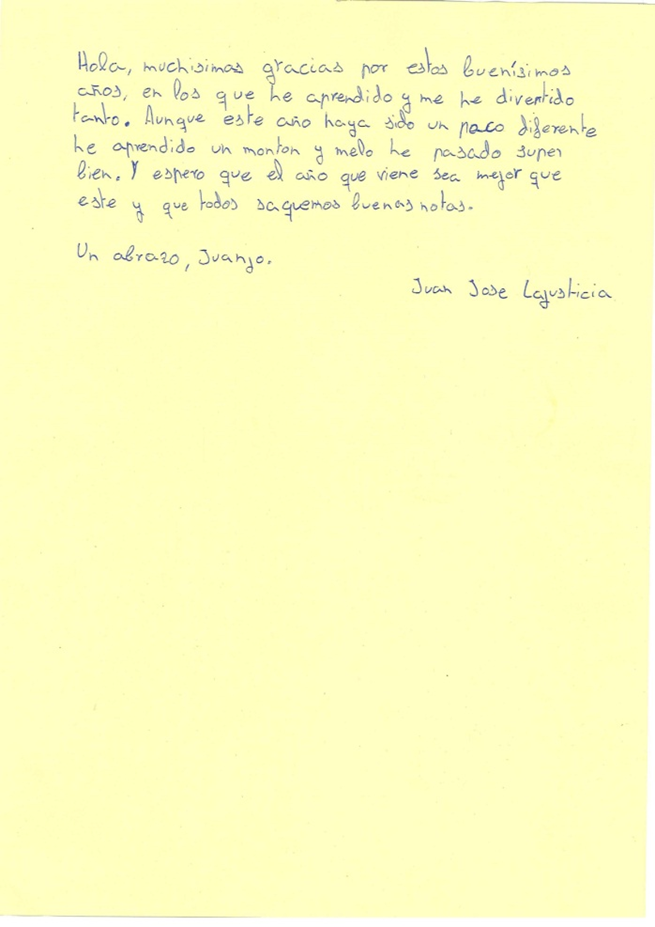 Hola, muchisimas gracias por estos buenísimos
años, en los que he aprendido y me he divertido
tanto. Aunque este año haya sido un poco diferente
he aprendido un monton y melo he pasado super
bien. Y espero que el año que viene sea mejor que
este y que todos saquemos buenas notas.
Un abrazo, Juanjo.
Juan Jose Lajusticia